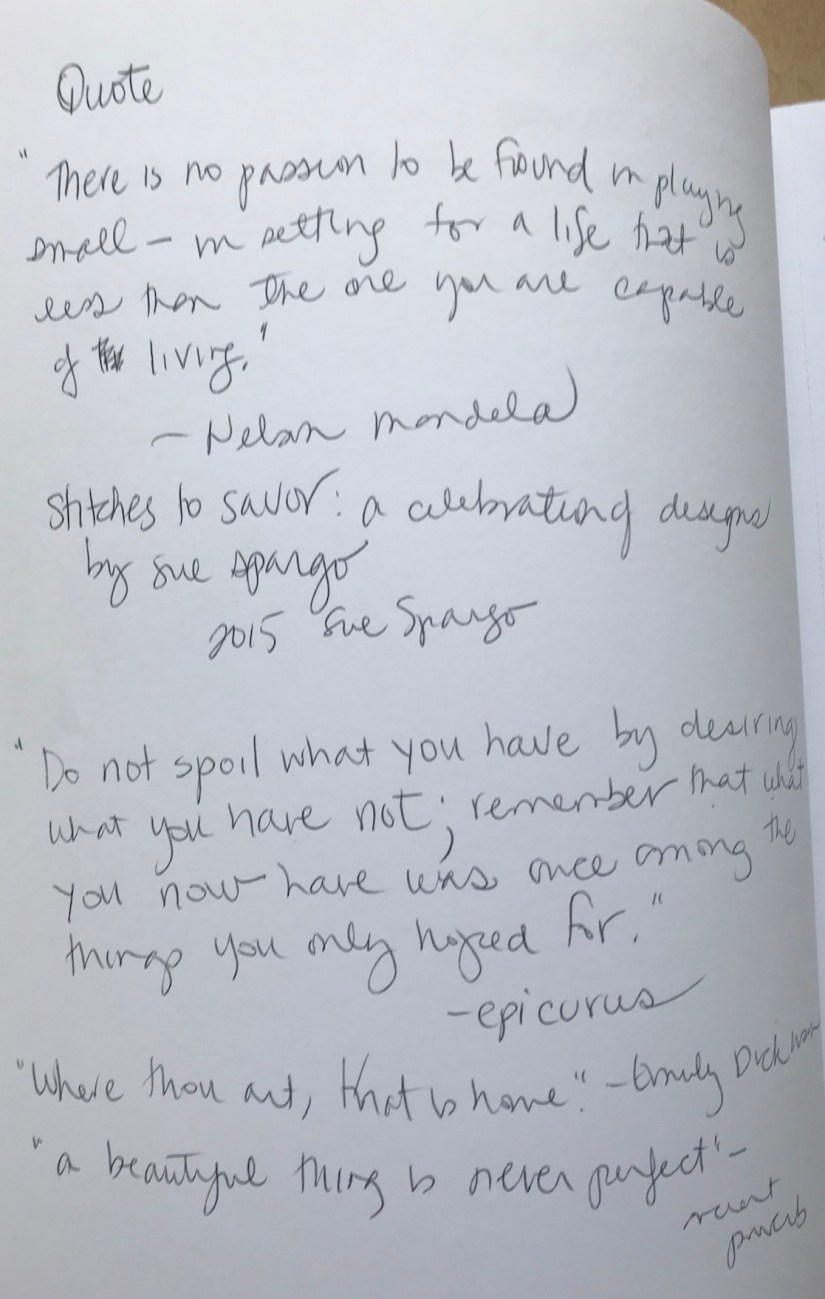 Quote
"There is no passion to be found in playing
small – in settling for a life that is
less than the one you are capable
of living."
– Nelson Mandela
Stitches to savor: a celebration of designs
by sue spargo
2015 Sue Spargo
"Do not spoil what you have by desiring
what you have not; remember that what
you now have was once among the
things you only hoped for."
– epicurus
"Where thou art, that is home." – Emily Dickinson
"a beautiful thing is never perfect" –
proverb